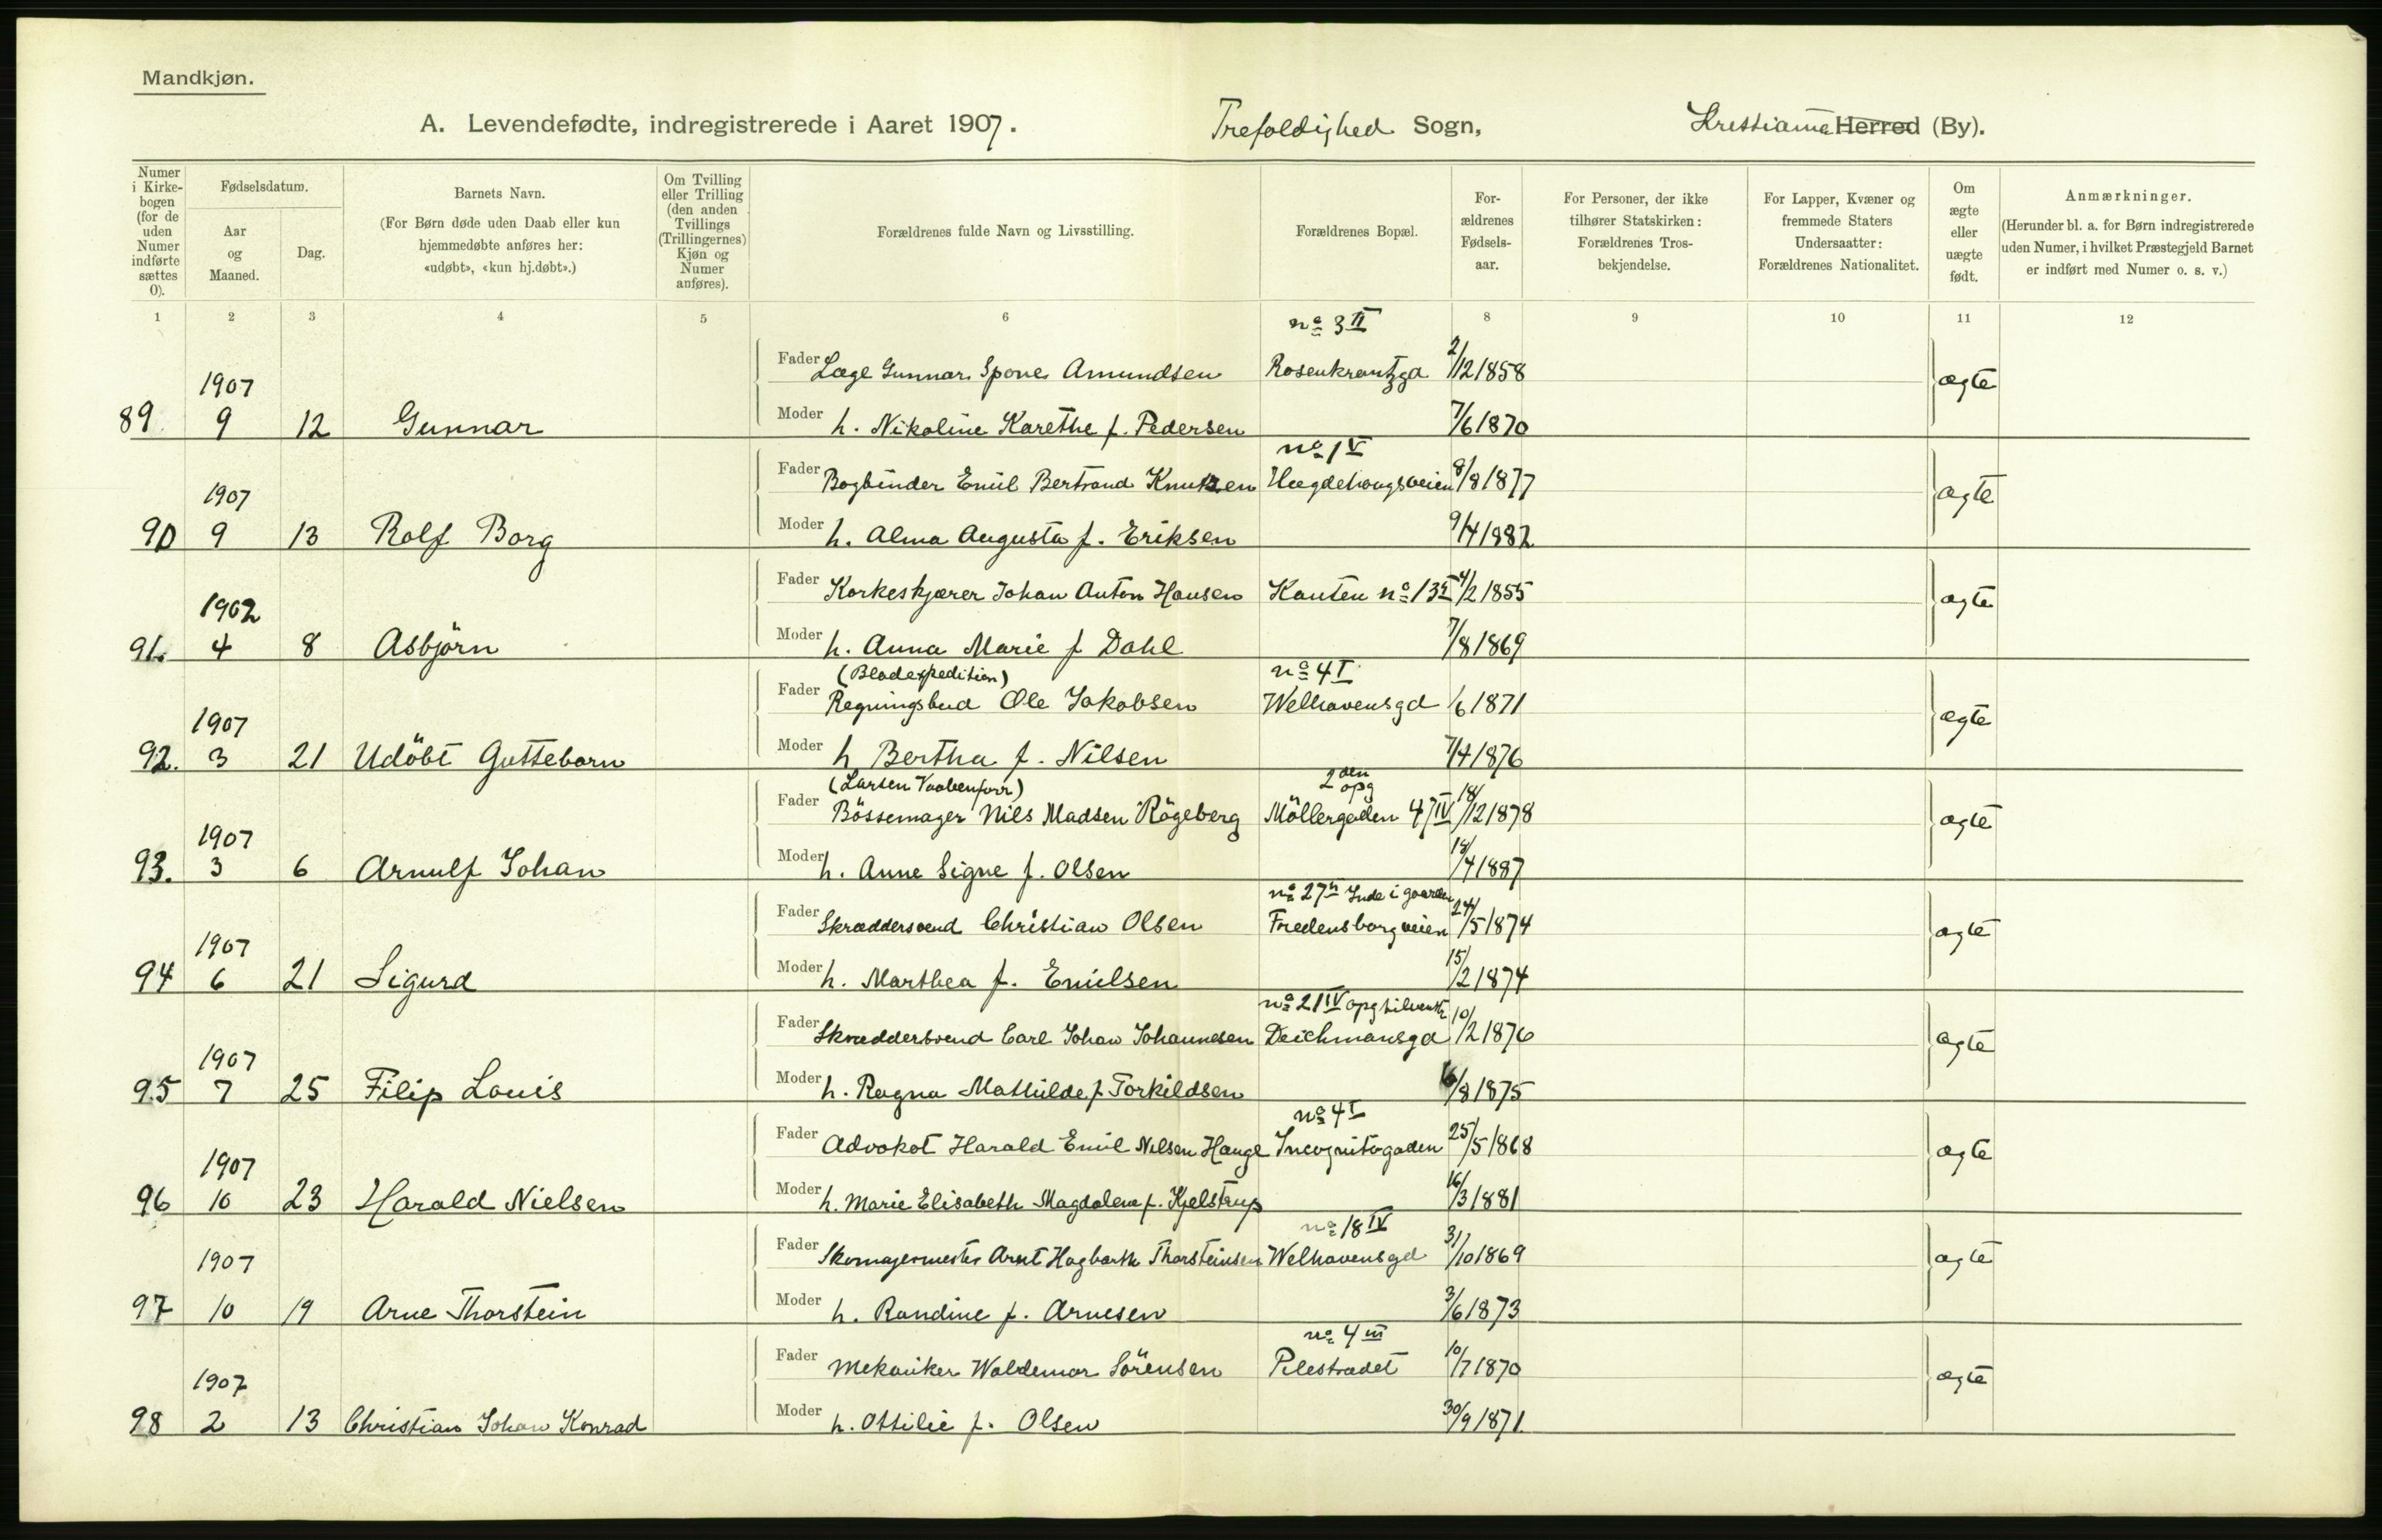 Mandkjøn.
A. Levendefødte, indregistrerede i Aaret 1907. Trefoldighed Sogn, Kristiania Herred (By).
Numer i Kirke-bogen (for de uden Numer indførte sættes 0).
Fødselsdatum.
Aar og Maaned.
Dag.
Barnets Navn.
(For Børn døde uden Daab eller kun hjemmedøbte anføres her: «udøbt», «kun hj.døbt».)
Om Tvilling eller Trilling (den anden Tvillings (Trillingernes) Kjøn og Numer anføres).
Forældrenes fulde Navn og Livsstilling.
Forældrenes Bopæl.
For-ældrenes Fødsels-aar.
For Personer, der ikke tilhører Statskirken: Forældrenes Tros-bekjendelse.
For Lapper, Kvæner og fremmede Staters Undersaatter: Forældrenes Nationalitet.
Om ægte eller uægte født.
Anmærkninger.
(Herunder bl. a. for Børn indregistrerede uden Numer, i hvilket Præstegjeld Barnet er indført med Numer o. s. v.)
1 2 3 4 5 6 8 9 10 11 12
no 3 II
Fader Læge Gunnar Spone Amundsen Rosenkrantzgd 2/12 1858
1907 ægte
89. 9 12 Gunnar Moder h. Nikoline Karethe f. Pedersen 7/6 1870
no 1 V
Fader Bogbinder Emil Bertrand Knutzen Hegdehaugsveien 8/8 1877
1907 ægte
90 9 13 Rolf Borg Moder h. Alma Augusta f. Eriksen 9/4 1882
Fader Korkeskjærer Johan Anton Hansen Kanten no 13 4/2 1855
1907 ægte
91. 4 8 Asbjörn Moder h. Anna Marie f Dahl 7/8 1869
(Bladexpedition) no 4 I
Fader Regningsbud Ole Jakobsen Welhavensgd 1/6 1871
1907 ægte
92. 3 21 Udöbt Guttebarn Moder h Bertha f. Nilsen 7/4 1876
(Larsen Vaabenforr) 2den opg
Fader Bössemager Nils Madsen Rögeberg Möllergaden 47 IV 18/12 1878
1907 ægte
93. 3 6 Arnulf Johan Moder h. Anne Signe f. Olsen 18/4 1887
no 27 II Inde i gaarden
Fader Skræddersvend Christian Olsen Fredensborgveien 24/5 1874
1907 ægte
94 6 21 Sigurd Moder h. Marthea f. Emilsen 15/2 1874
no 21 IV opg tilvenstr
Fader Skræddersvend Carl Johan Johannesen Deichmansgd 10/2 1876
1907 ægte
95 7 25 Filip Louis Moder h. Ragna Mathilde f. Torkildsen 16/8 1875
no 4 I
Fader Advokat Harald Emil Nilsen Hauge Incognitogaden 25/5 1868
1907 ægte
96 10 23 Harald Nielsen Moder h. Marie Elisabeth Magdalena f. Kjelstrup 16/3 1881
no 18 IV
Fader Skomagermester Arnt Hagbarth Thorsteinsen Welhavensgd 31/10 1869
1907 ægte
97 10 19 Arne Thorstein Moder h. Randine f. Arnesen 3/6 1873
no 4 III
Fader Mekaniker Waldemar Sörensen Pilestrædet 10/7 1870
1907 ægte
98 2 13 Christian Johan Konrad Moder h. Ottilie f. Olsen 30/9 1871